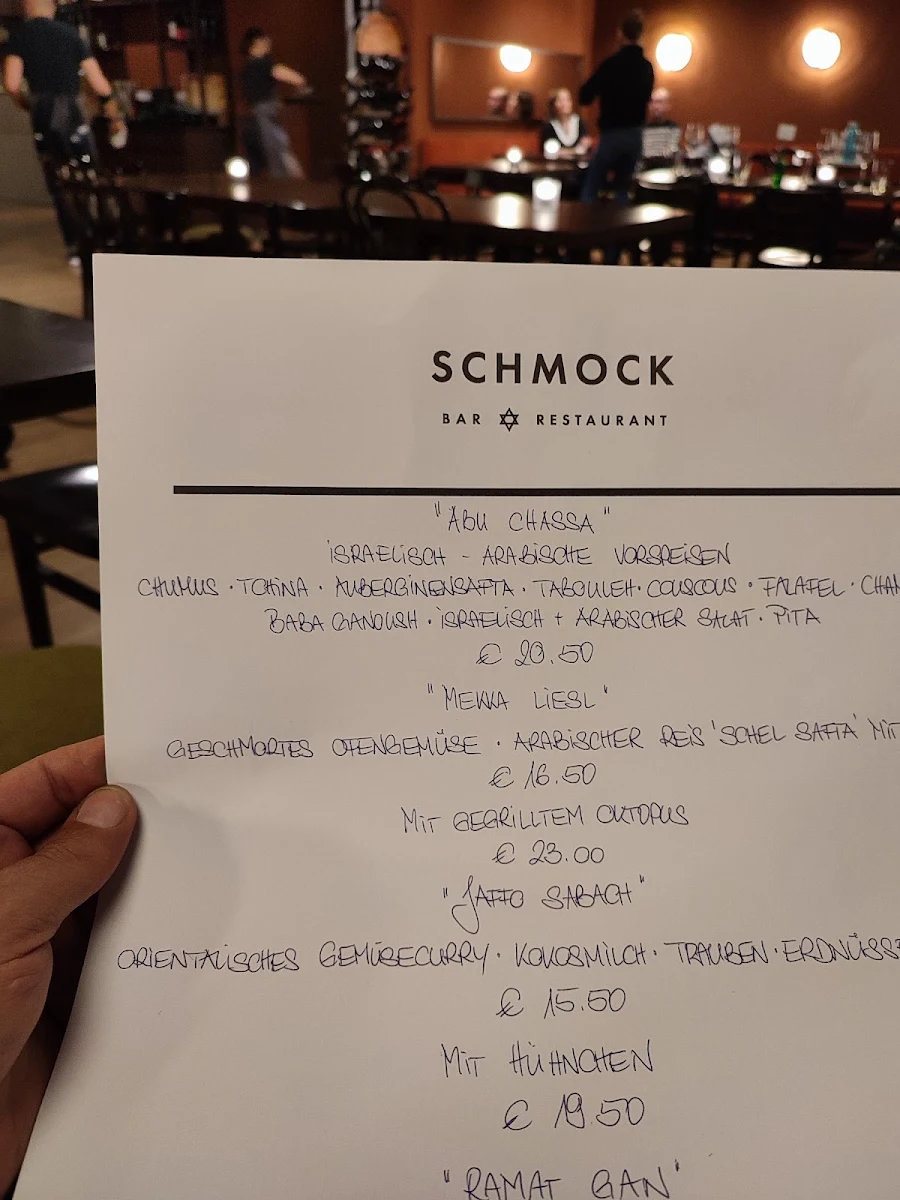 SCHMOCK
BAR ✡ RESTAURANT
"ABU CHASSA"
ISRAELISCH - ARABISCHE VORSPEISEN
CHUMUS · TCHINA · AUBERGINENSAFTA · TABOULEH · COUSCOUS · FALAFEL · CHAM
BABA GANOUSH · ISRAELISCH + ARABISCHER SALAT · PITA
€ 20.50
"MEKKA LIESL"
GESCHMORTES OFENGEMÜSE · ARABISCHER REIS 'SCHEL SAFTA' MIT
€ 16.50
MIT GEGRILLTEM OKTOPUS
€ 23.00
"JAFFO SABACH"
ORIENTALISCHES GEMÜSECURRY · KOKOSMILCH · TRAUBEN · ERDNÜSSE
€ 15.50
MIT HÜHNCHEN
€ 19.50
"RAMAT GAN"